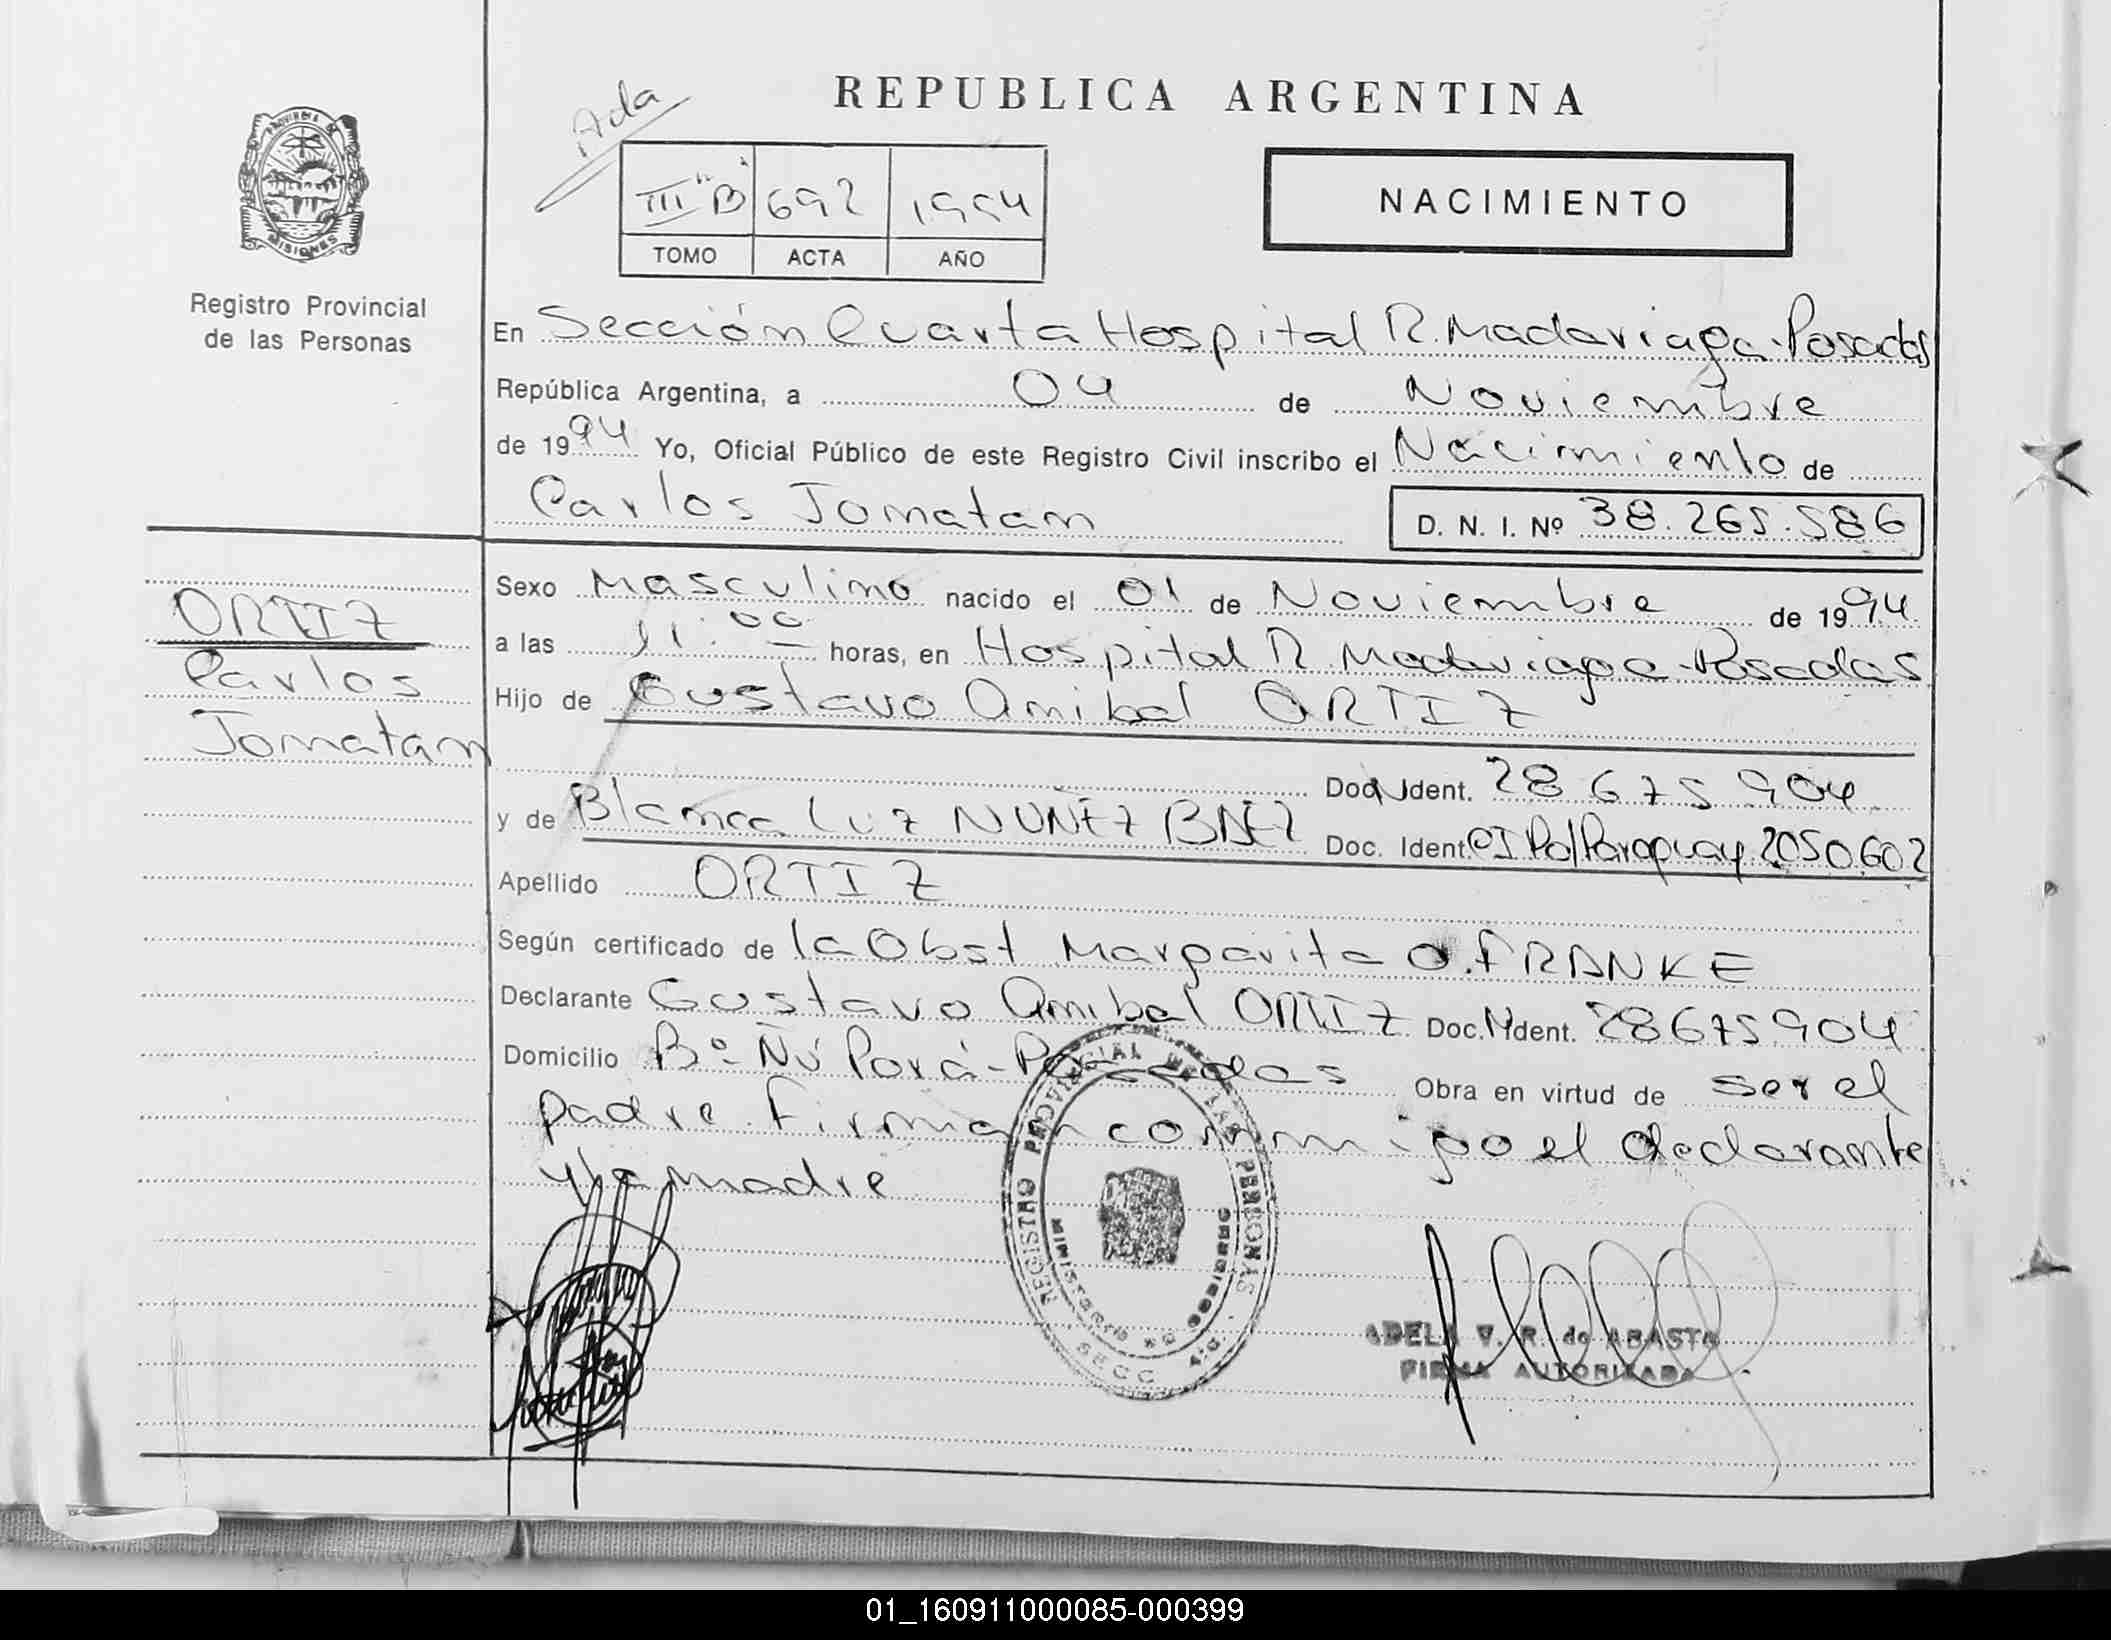 REPUBLICA ARGENTINA
Ada
III "B" 692 1994
TOMO ACTA AÑO
NACIMIENTO
PROVINCIA DE
MISIONES
Registro Provincial
de las Personas
En Sección Cuarta Hospital R. Madariaga-Posadas
República Argentina, a 04 de Noviembre
de 1994 Yo, Oficial Público de este Registro Civil inscribo el Nacimiento de
Carlos Jomatam
D. N. I. Nº 38.265.586
ORTIZ
Carlos
Jomatam
Sexo Masculino nacido el 01 de Noviembre de 1994
a las 11:00 horas, en Hospital R. Madariaga-Posadas
Hijo de Gustavo Anibal ORTIZ
Doc. N Ident. 28 675 904
y de Blanca Luz NUÑEZ BAEZ Doc. Ident. CI Pol Paraguay 2050602
Apellido ORTIZ
Según certificado de la Obst Margarita O. FRANKE
Declarante Gustavo Anibal ORTIZ Doc. N Ident. 28675904
Domicilio Bº Ñú Porá-Posadas Obra en virtud de ser el
padre. Firman conmigo el declarante
y la madre
REGISTRO PROVINCIAL DE LAS PERSONAS
MINISTERIO DE GOBIERNO
SECC 4ta.
ADELA V. R. de ABASTO
FIRMA AUTORIZADA
01_160911000085-000399